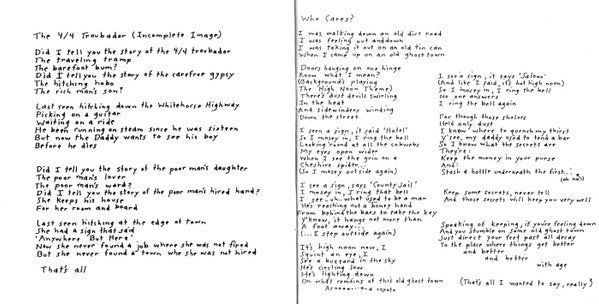 The 4/4 Troubador (Incomplete Image)
Did I tell you the story of the 4/4 trobador
The traveling tramp
The barefoot bum?
Did I tell you the story of the carefree gypsy
The hitching hobo
The rich man's son?
Last seen hitching down the Whitehorse Highway
Picking on a guitar
Waiting on a ride
He been running on steam since he was sixteen
But now the Daddy wants to see his boy
Before he dies
Did I tell you the story of the poor man's daughter
The poor man's lover
The poor man's ward?
Did I tell you the story of the poor man's hired hand?
She keeps his house
For her room and board
Last seen hitching at the edge of town
She had a sign that said
"Anywhere But Here"
Now she never found a job where she was not fired
But she never found a town whe she was not hired
That's all
Who Cares?
I was walking down an old dirt road
I was feeling out and down
I was taking it out on an old tin can
When I came up on an old ghost town
Doors hanging on one hinge
Know what I mean?
(Background's playing
The High Noon Theme)
There's dust devils swirling
In the heat
And sidewinders winding
Down the street
I seen a sign, it said 'Hotel'
So I mosey in, I ring the bell
Looking 'round at all the cobwebs
My eyes open wider
When I see the grin on a
Cheshire spider...
(So I mosey out again)
I see a sign, says 'County Jail'
I mosey in, I ring that bell
I see..uh..what used to be a man
He's reaching out a boney hand
From behind the bars to take the key
Y'know, it hangs not more than
A foot away...
(...I step outside again)
It's high noon now, I
Squint an eye, I
See a buzzard in the sky
He's circling low
He's lighting down
On what's remains of this old ghost town
a coyote
I see a sign, it says 'Saloon'
(And like I said, it's hot high noon)
So I mosey in, I ring the bell
No one answers
I ring the bell again
For though those shelves
Held only dust
I know where to quench my thirst
Y'see, my daddy used to tend a bar
So I know what the secrets are
They're:
Keep the money in your purse
And:
Stash a bottle underneath the first...
(oh no)
Keep some secrets, never tell
And those secrets will keep you very well
Speaking of keeping, if you're feeling down
And you stumble on some old ghost town
Just direct your feet past all decay
To the place where things get better
and better
and better
with age
(That's all I wanted to say, really)